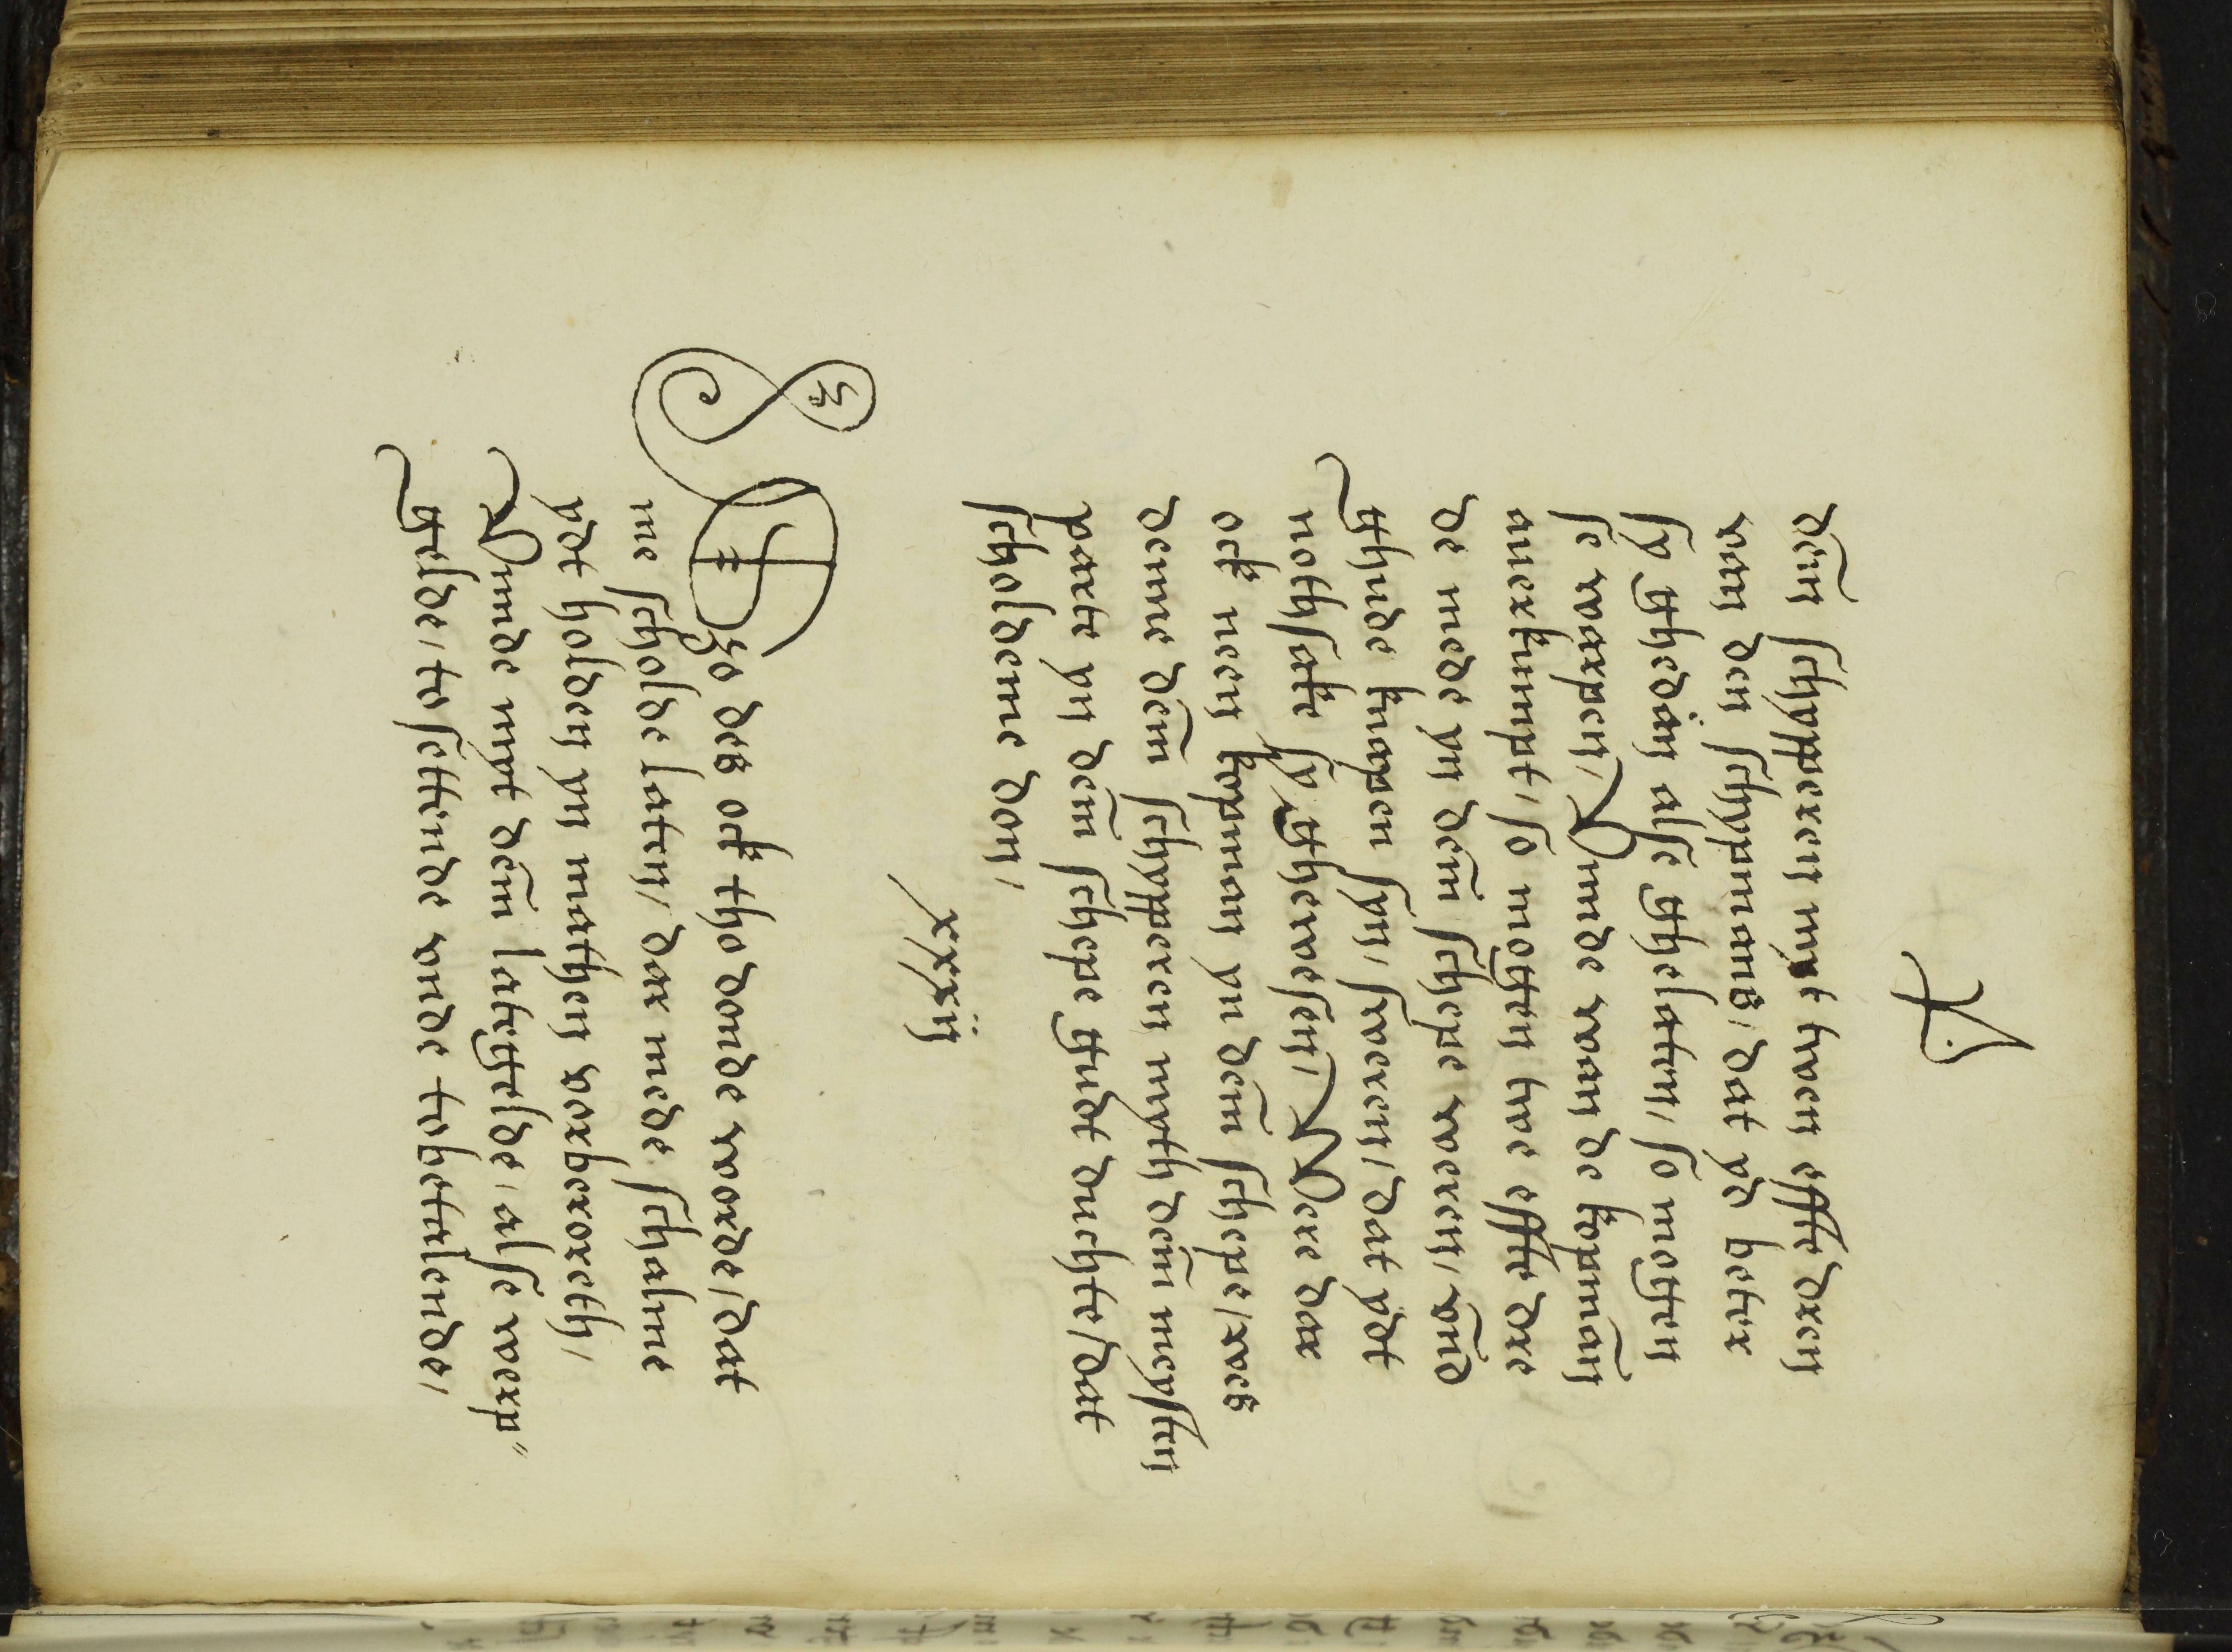 dem schypperen myt twen effte dren
van den schypmans, dat yd beter
sy ghedan alse ghelaten, so mogen
se warpen, Unde van de kopman
auerkumpt, so mogen twe effte dre
de mede yn dem schepe weren, vnd
ghude knapen syn, sweren, dat ydt
noth sake sy ghewesen, Were dar
ock neen kopman yn dem schepe, wes
deme dem schypperen myth dem meysten
parte yn dem schepe gudt duchte, dat
scholdeme don,
xxxij
So des ock tho donde worde, dat
me scholde laten, dar mede schalme
ydt holden yn mathen vorberoreth,
Unde men myt dem lategelde, alse warp"
gelde, to settende vnde to betalende,